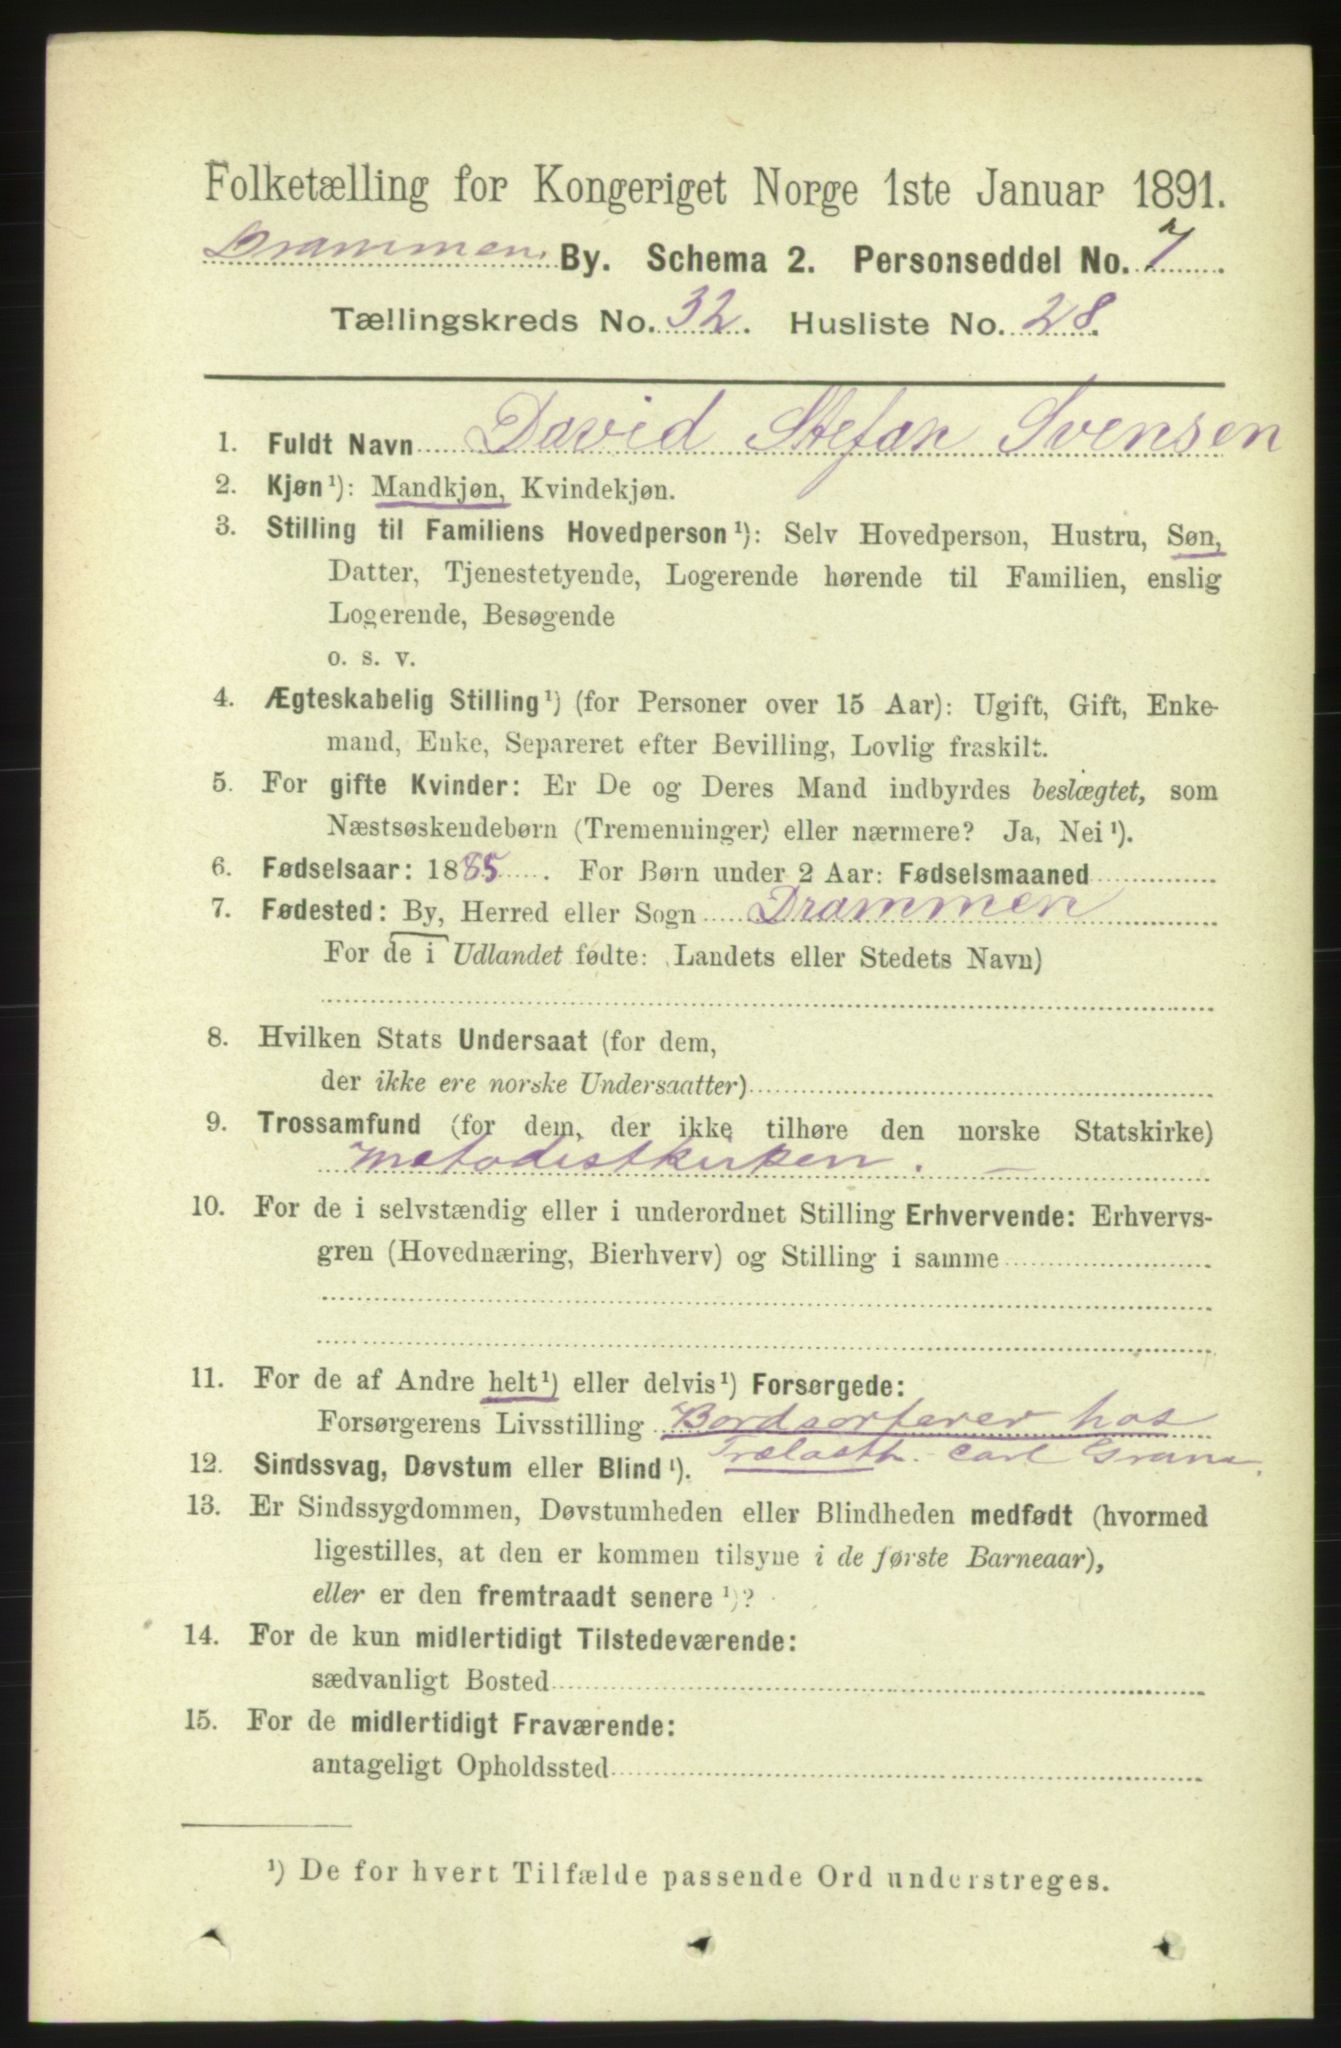 Folketælling for Kongeriget Norge 1ste Januar 1891.
Drammen By. Schema 2. Personseddel No. 7.
Tællingskreds No. 32. Husliste No. 28.
1. Fuldt Navn David Stefan Svensen
2. Kjøn¹): Mandkjøn, Kvindekjøn.
3. Stilling til Familiens Hovedperson¹): Selv Hovedperson, Hustru, Søn,
Datter, Tjenestetyende, Logerende hørende til Familien, enslig
Logerende, Besøgende
o. s. v.
4. Ægteskabelig Stilling¹) (for Personer over 15 Aar): Ugift, Gift, Enke-
mand, Enke, Separeret efter Bevilling, Lovlig fraskilt.
5. For gifte Kvinder: Er De og Deres Mand indbyrdes beslægtet, som
Næstsøskendebørn (Tremenninger) eller nærmere? Ja, Nei¹).
6. Fødselsaar: 1885. For Børn under 2 Aar: Fødselsmaaned
7. Fødested: By, Herred eller Sogn Drammen
For de i Udlandet fødte: Landets eller Stedets Navn)
8. Hvilken Stats Undersaat (for dem,
der ikke ere norske Undersaatter)
9. Trossamfund (for dem, der ikke tilhøre den norske Statskirke)
Metodistkirken.
10. For de i selvstændig eller i underordnet Stilling Erhvervende: Erhvervs-
gren (Hovednæring, Bierhverv) og Stilling i samme
11. For de af Andre helt¹) eller delvis¹) Forsørgede:
Forsørgerens Livsstilling Bordsorterer hos
Trælasth. Carl
12. Sindssvag, Døvstum eller Blind¹).
13. Er Sindssygdommen, Døvstumheden eller Blindheden medfødt (hvormed
ligestilles, at den er kommen tilsyne i de første Barneaar),
eller er den fremtraadt senere¹)?
14. For de kun midlertidigt Tilstedeværende:
sædvanligt Bosted
15. For de midlertidigt Fraværende:
antageligt Opholdssted
¹) De for hvert Tilfælde passende Ord understreges.